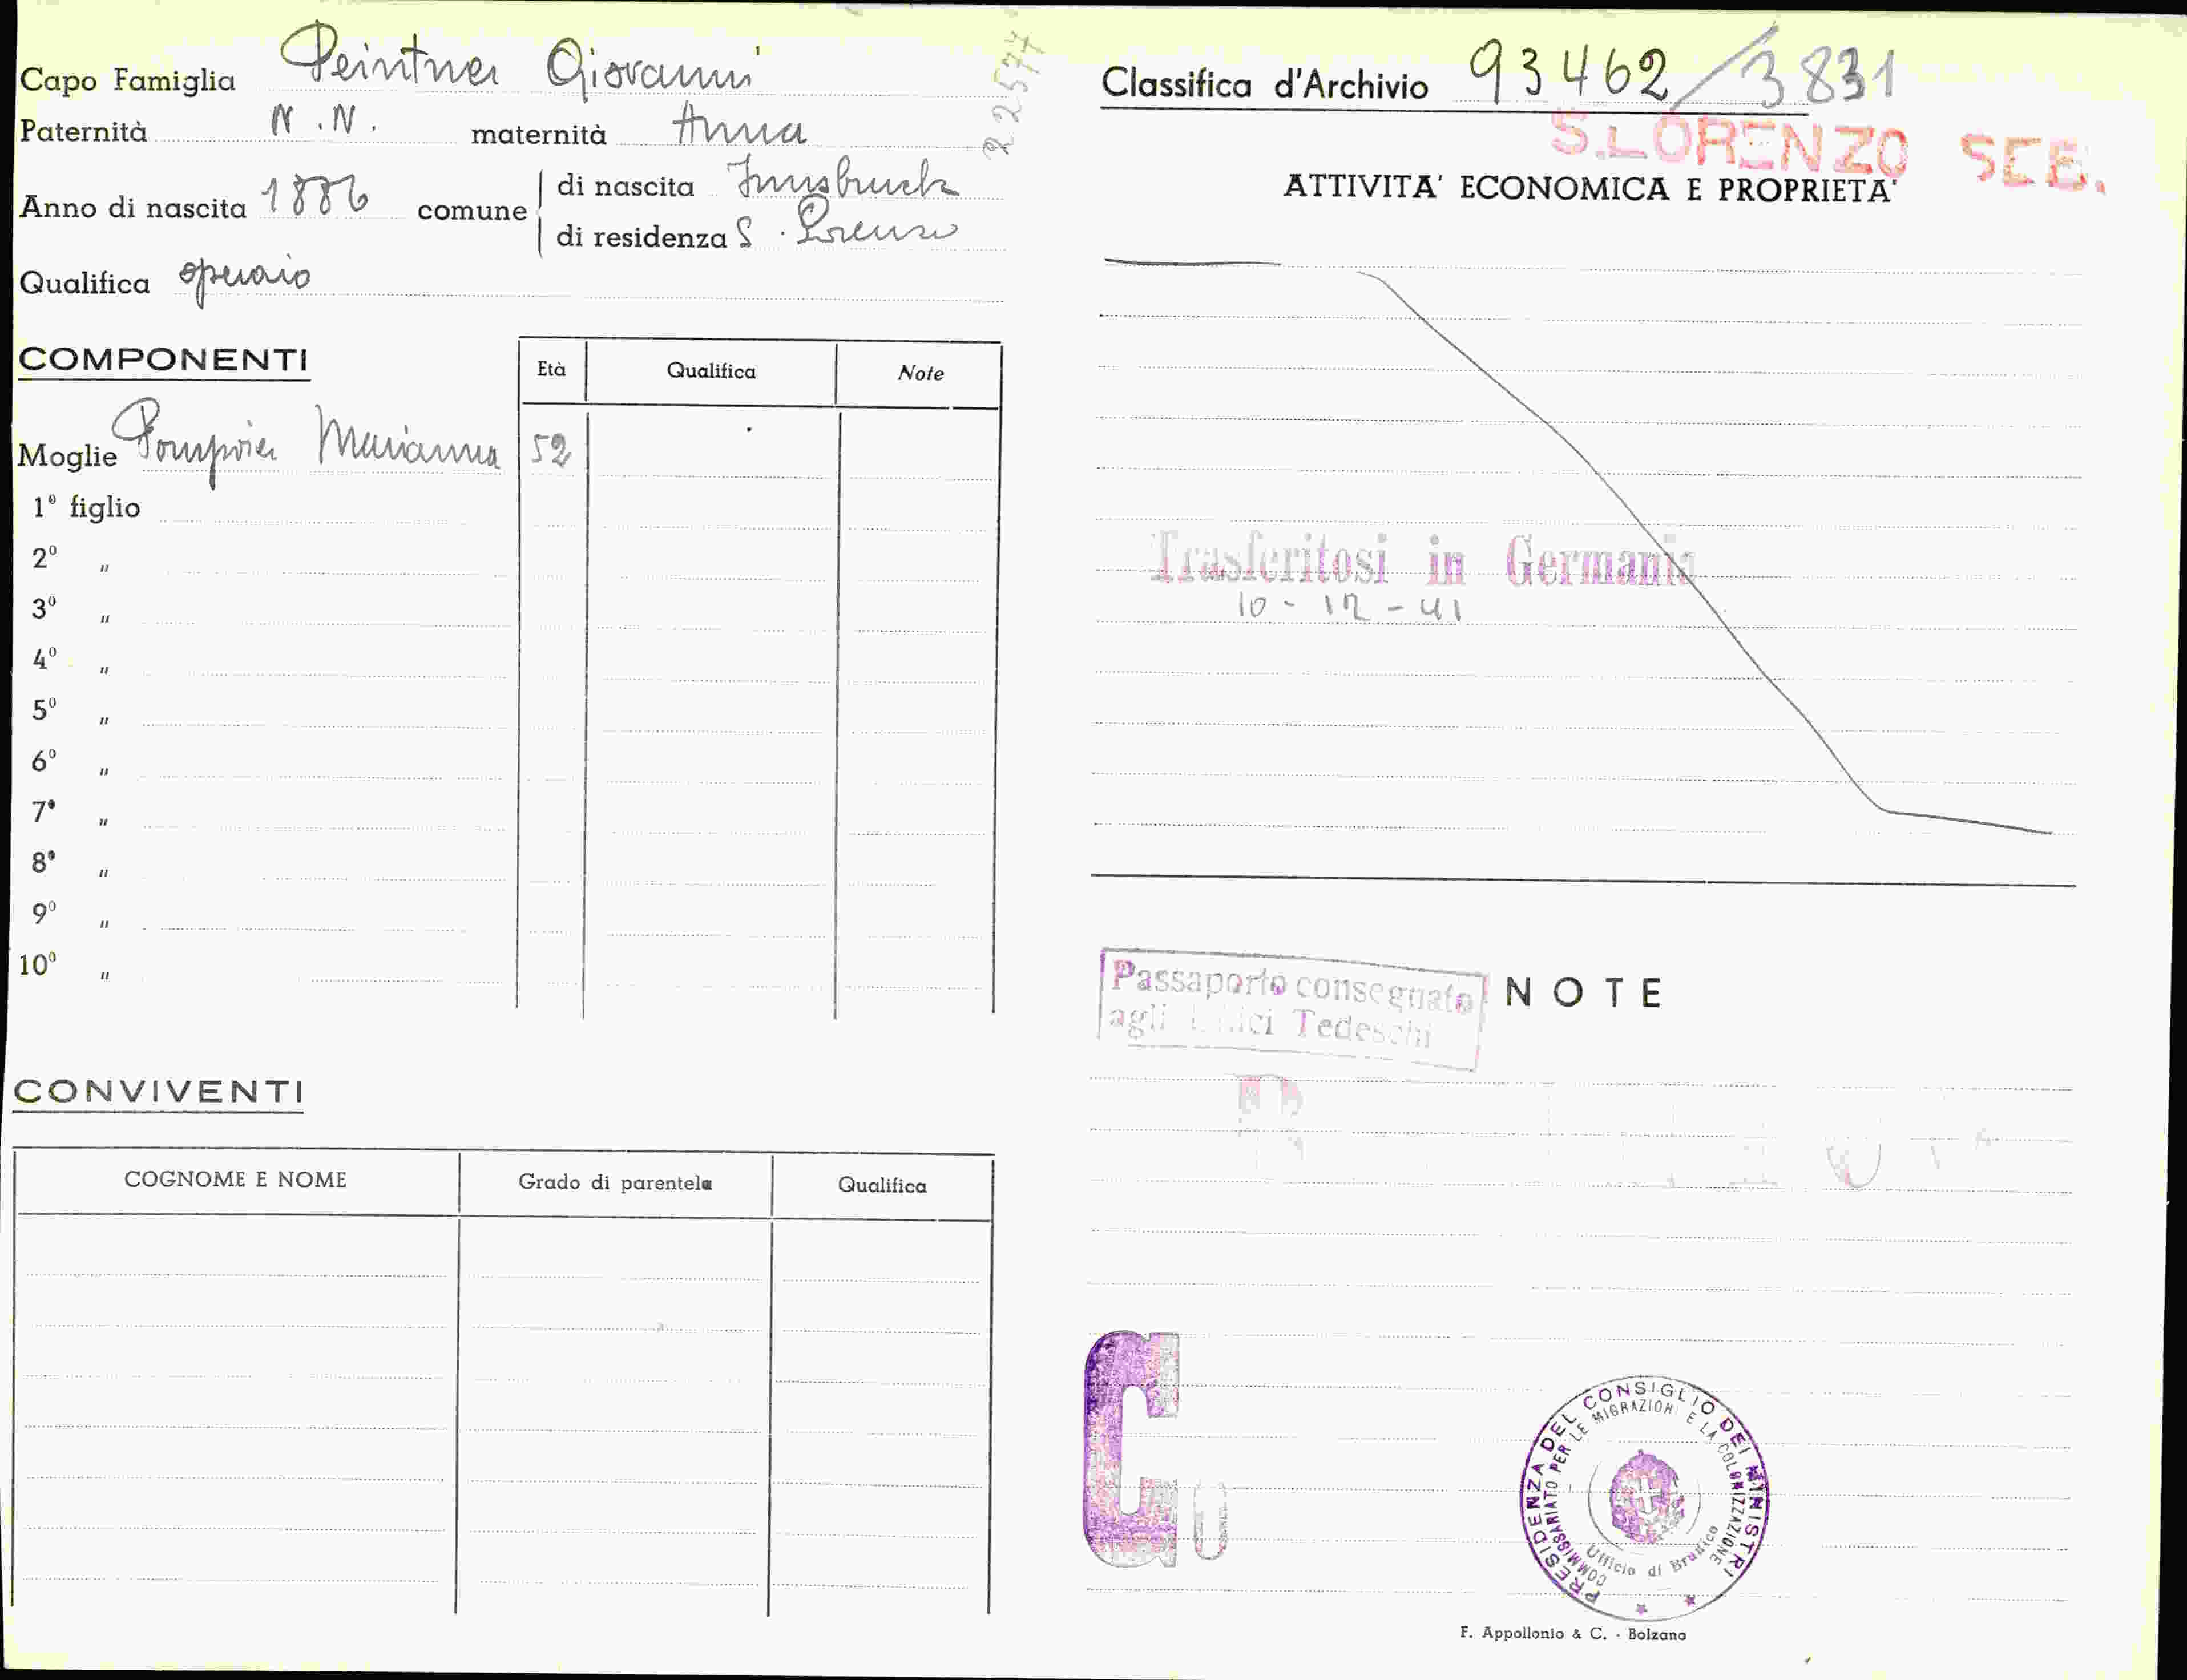 Capo Famiglia Peintner Giovanni
Paternità N.N. maternità Anna
22577
Anno di nascita 1886 comune di nascita Innsbruck
di residenza S. Lorenzo
Qualifica operaio
COMPONENTI
Età Qualifica Note
Moglie Marianna 52
1º figlio
2º "
3º "
4º "
5º "
6º "
7º "
8º "
9º "
10º "
CONVIVENTI
COGNOME E NOME Grado di parentela Qualifica
Classifica d'Archivio 93462/3831
S.LORENZO SEB.
ATTIVITA' ECONOMICA E PROPRIETA'
Trasferitosi in Germania
10-12-41
Passaporto consegnato
agli Uffici Tedeschi
NOTE
C
PRESIDENZA DEL CONSIGLIO DEI MINISTRI
COMMISSARIATO PER LE MIGRAZIONI E LA COLONIZZAZIONE
Ufficio di Brunico
F. Appollonio & C. - Bolzano